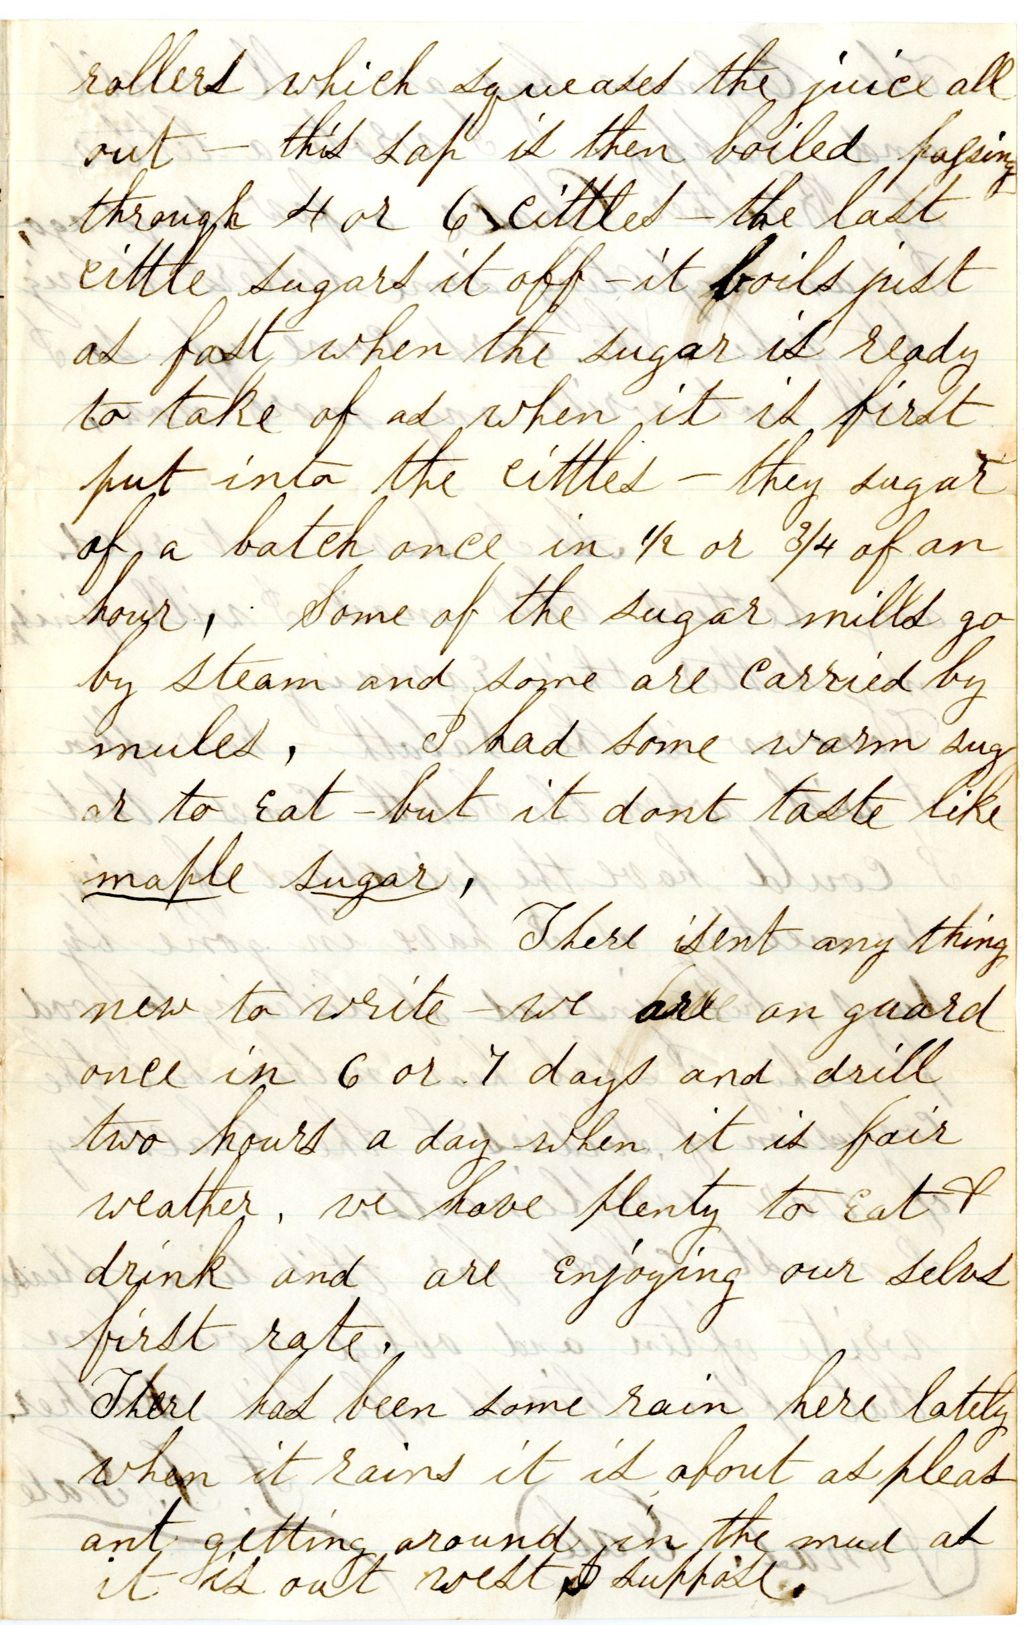 rollers which squeases the juice all
out – this sap is then boiled passing
through 4 or 6 cittles – the last
cittle sugars it off – it boils just
as fast when the sugar is ready
to take of as when it is first
put into the cittles – they sugar
of a batch once in 1/2 or 3/4 of an
hour, Some of the sugar mills go
by steam and some are carried by
mules, I had some warm sug
ar to eat – but it dont taste like
maple sugar,
There isent any thing
new to write – we are on guard
once in 6 or 7 days and drill
two hours a day when it is fair
weather, we have plenty to eat &
drink and are enjoying our selvs
first rate.
There has been some rain here lately
when it rains it is about as pleas
ant getting around in the mud as
it is out west I suppose.